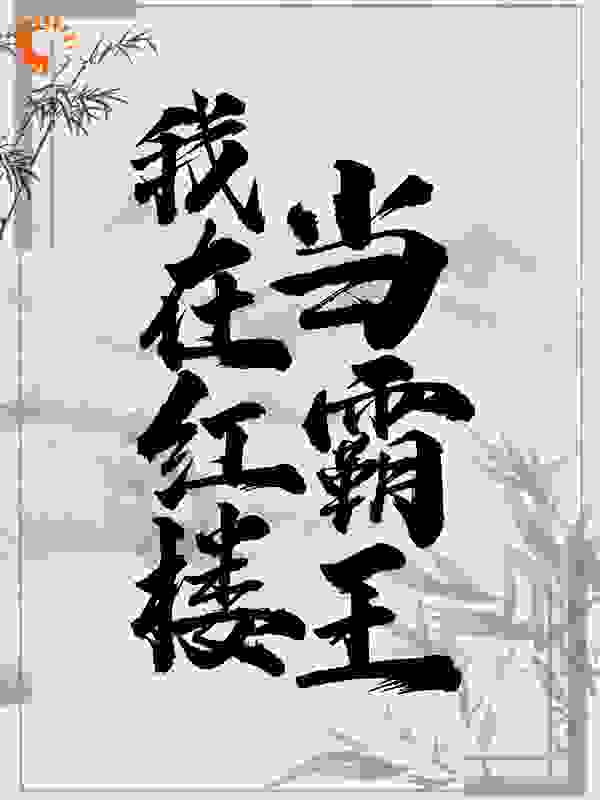 我在红楼
当霸王